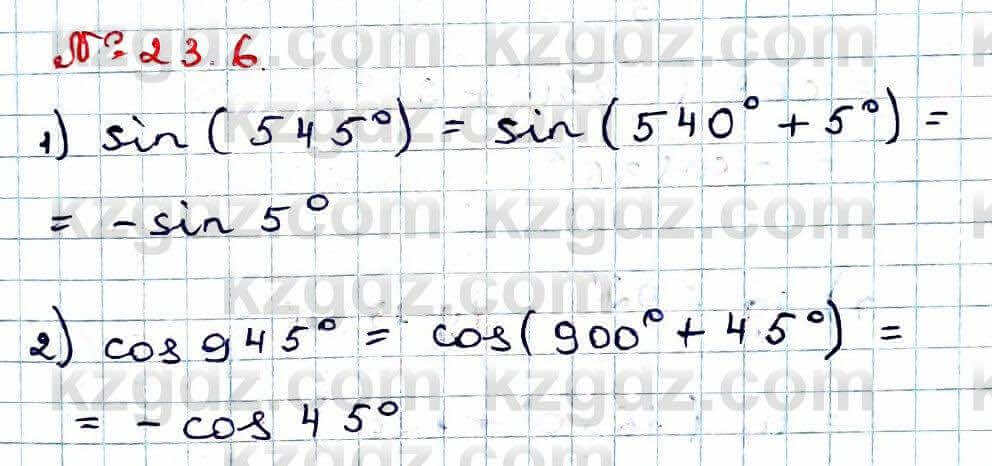 № 23.6.
1) sin(545°) = sin(540° + 5°) =
= -sin 5°
2) cos 945° = cos(900° + 45°) =
= - cos 45°
kzgdz.com kzgdz.com
kzgdz.com kzgdz.com
kzgdz.com kzgdz.com
kzgdz.com
kzgdz.com kzgdz.com